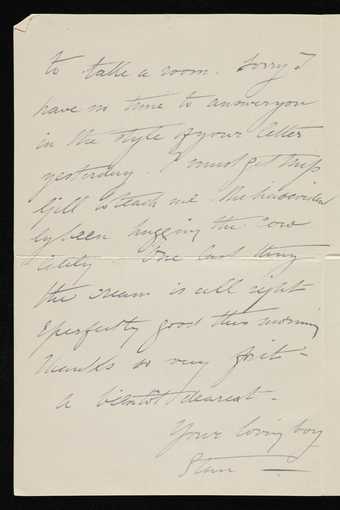 to take a room. Sorry I
have no time to answer you
in the style of your letter
yesterday. I must get
to teach me. She has evident
ly been hugging the cow
lately. One last thing
the cream is all right
& perfectly good this morning
Thanks so very for it -
à bientôt dearest -
Your loving boy
Stan